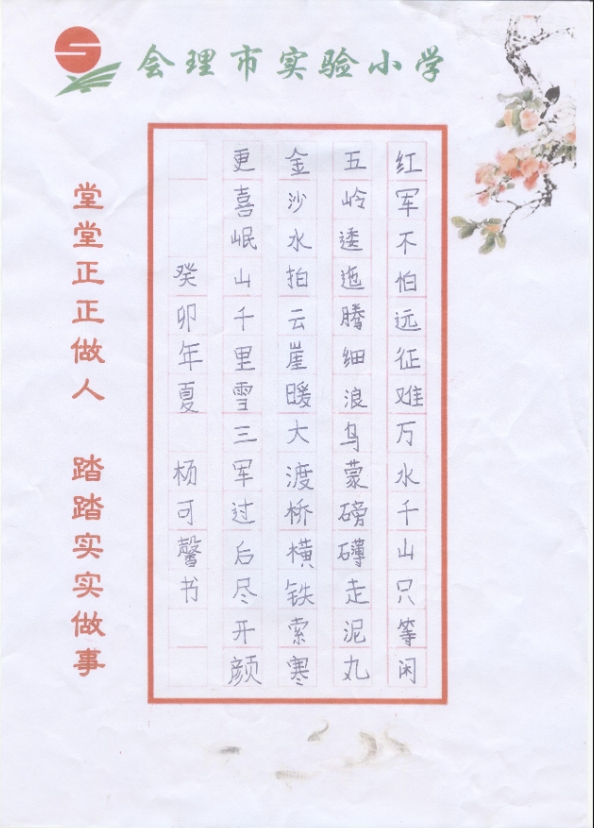 会理市实验小学
红军不怕远征难万水千山只等闲
五岭逶迤腾细浪乌蒙磅礴走泥丸
金沙水拍云崖暖大渡桥横铁索寒
更喜岷山千里雪三军过后尽开颜
癸卯年夏 杨可馨书
堂堂正正做人 踏踏实实做事